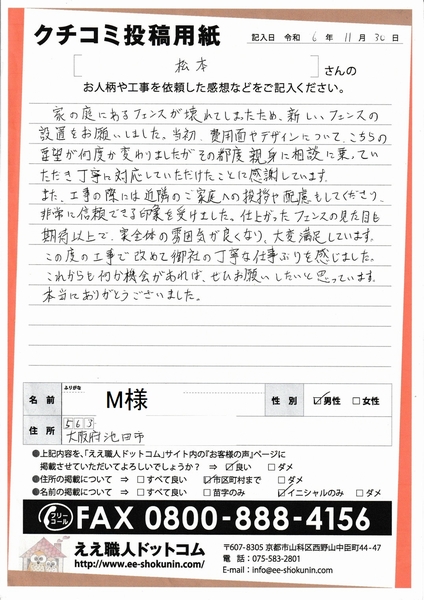 クチコミ投稿用紙
記入日 令和 6 年 11 月 30 日
松本 さんの
お人柄や工事を依頼した感想などをご記入ください。
家の庭にあるフェンスが壊れてしまったため、新しいフェンスの
設置をお願いしました。当初、費用面やデザインについて、こちらの
要望が何度か変わりましたがその都度親身に相談に乗ってい
ただき丁寧に対応していただけたことに感謝しています。
また、工事の際には近隣のご家庭への挨拶や配慮もしてくださり、
非常に信頼できる印象を受けました。仕上がったフェンスの見た目も
期待以上で、家全体の雰囲気が良くなり、大変満足しています。
この度の工事で改めて御社の丁寧な仕事ぶりを感じました。
これからも何か機会があれば、ぜひお願いしたいと思っています。
本当にありがとうございました。
ふりがな
名前 M様 性別 ☑男性 □女性
住所 563
大阪府池田市
●上記内容を、「ええ職人ドットコム」サイト内の『お客様の声』ページに
掲載させていただいてよろしいでしょうか? ⇒ ☑良い □ダメ
●住所の掲載について ⇒ □すべて良い ☑市区町村まで □ダメ
●名前の掲載について ⇒ □すべて良い □苗字のみ ☑イニシャルのみ □ダメ
フリーコール FAX 0800-888-4156
ええ職人ドットコム
http://www.ee-shokunin.com/
〒607-8305 京都市山科区西野山中臣町44-47
電話:075-583-2801
E-mail:info@ee-shokunin.com